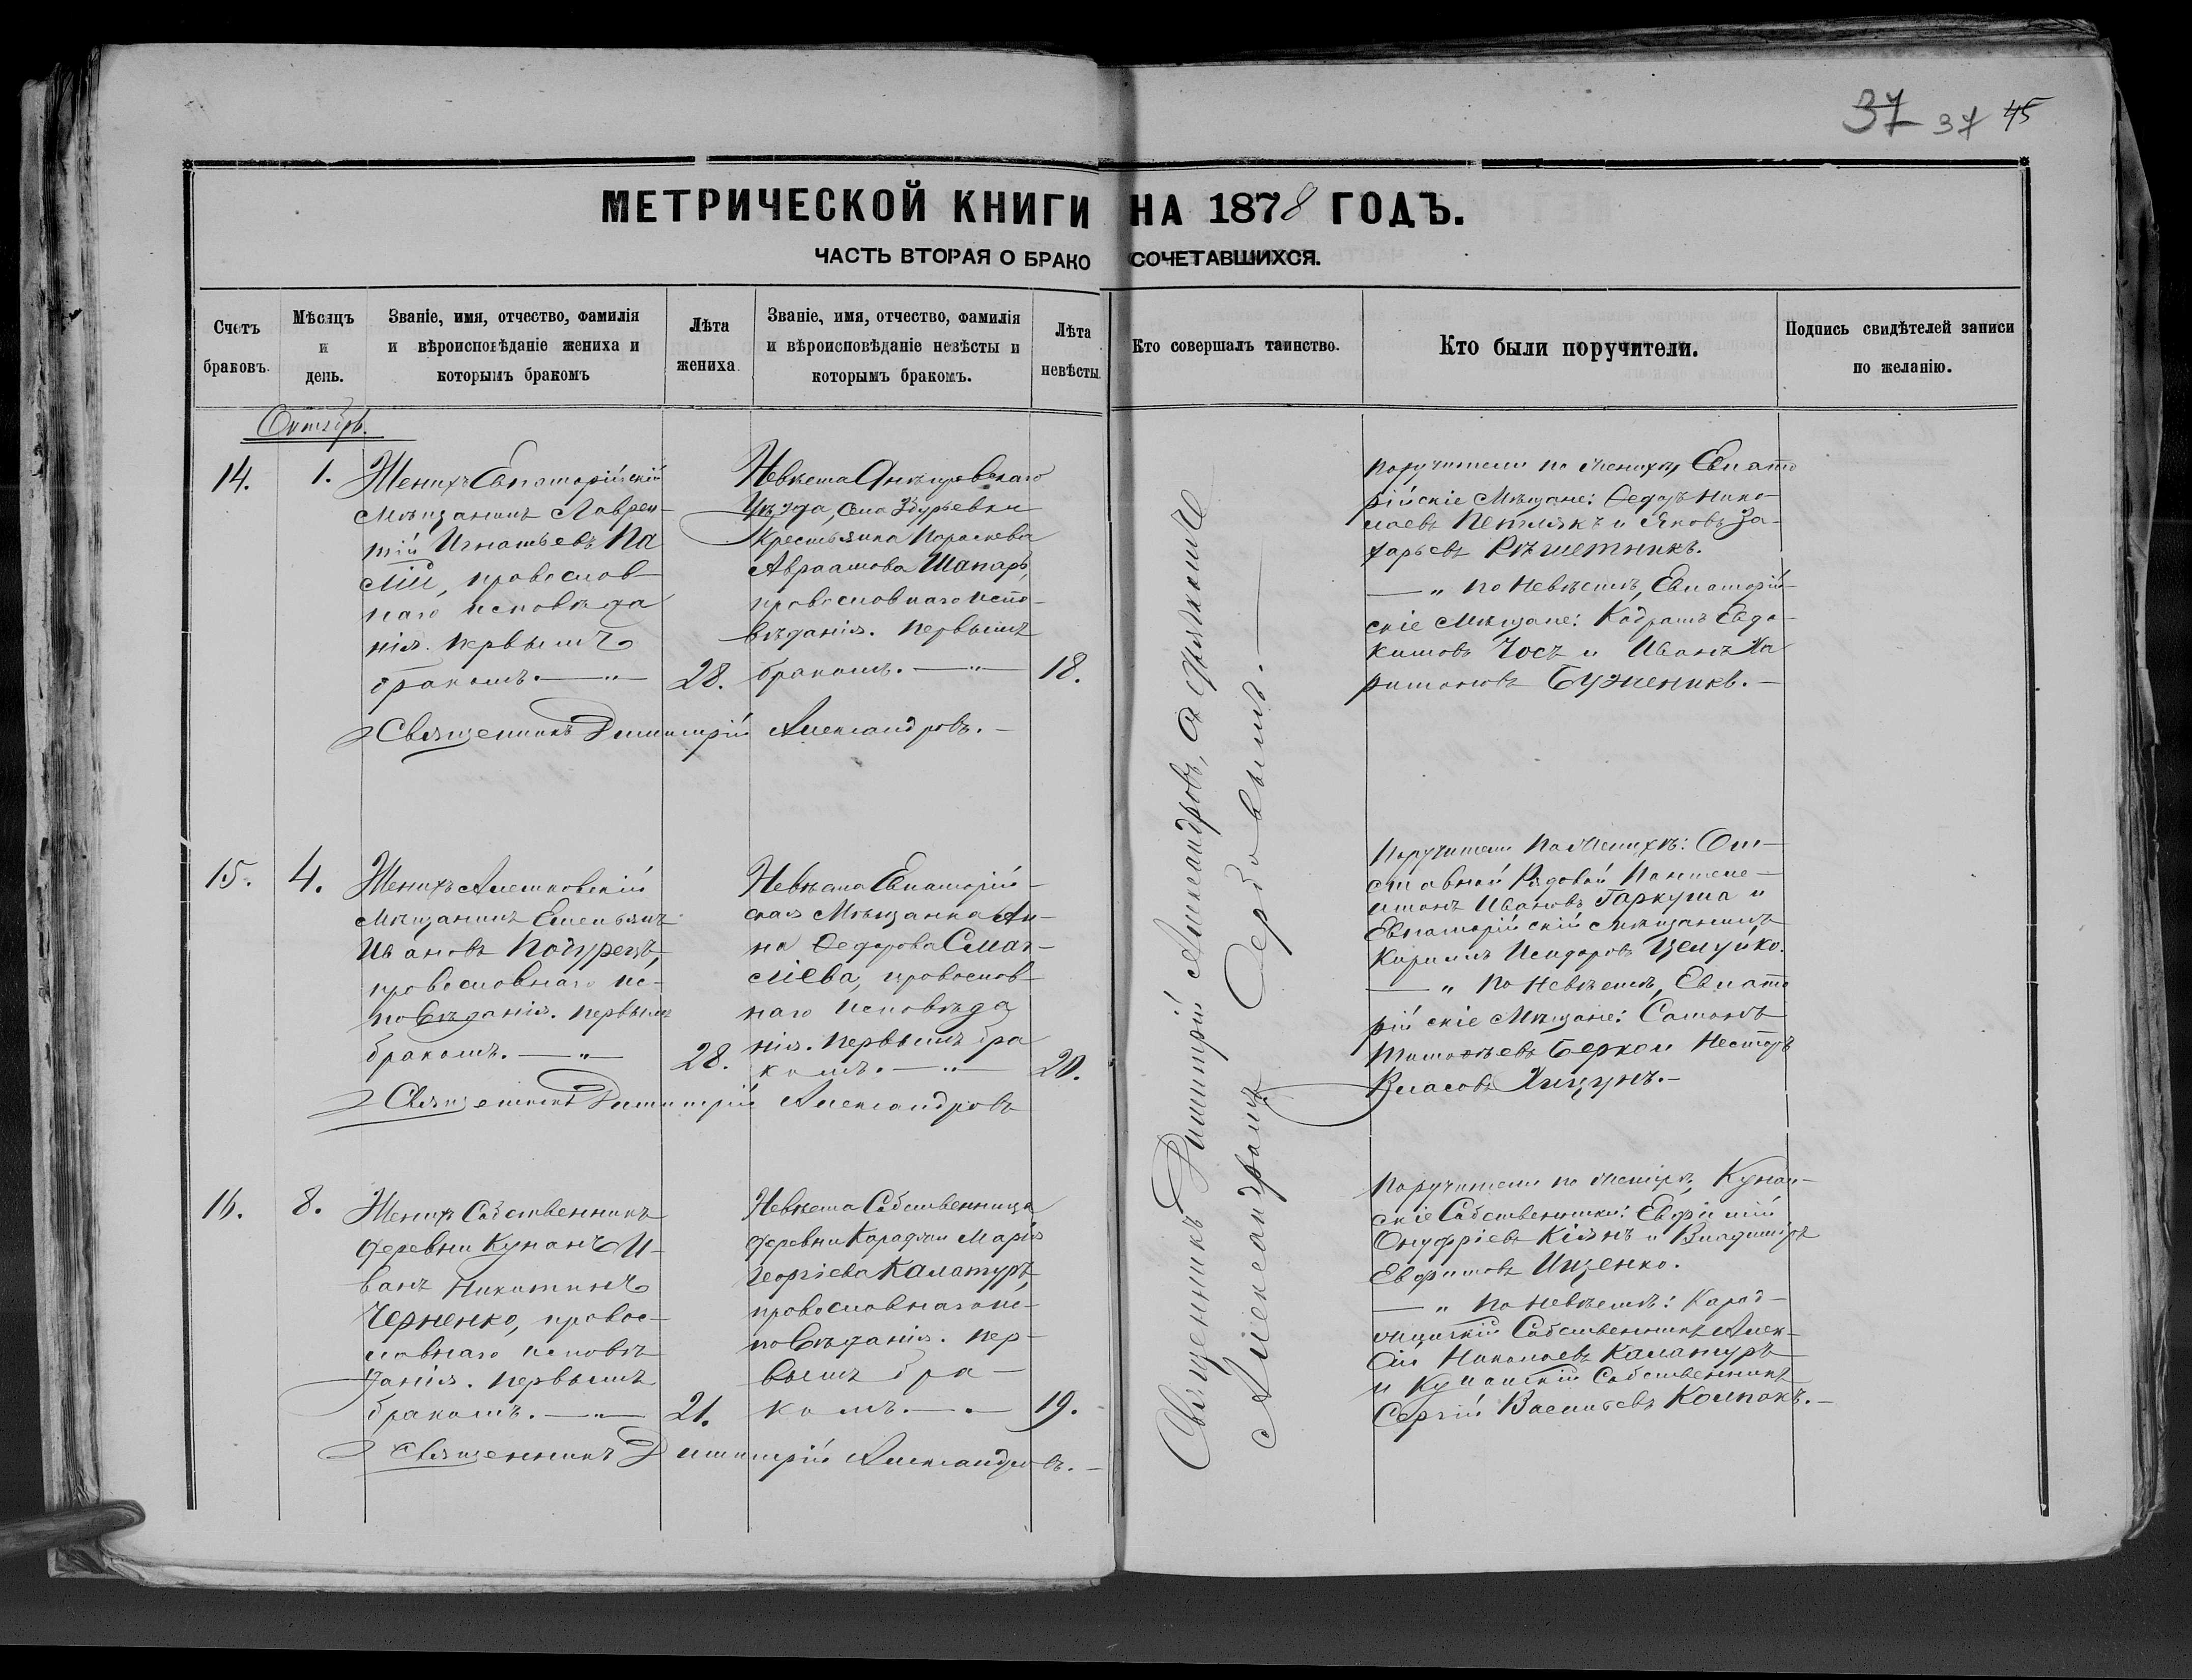 37 37 45
МЕТРИЧЕСКОЙ КНИГИ НА 1878 ГОДЪ.
ЧАСТЬ ВТОРАЯ О БРАКОСОЧЕТАВШИХСЯ.
Счетъ браковъ.
Мѣсяцъ и день.
Званіе, имя, отчество, фамилія
и вѣроисповѣданіе жениха и
которымъ бракомъ
Лѣта жениха.
Званіе, имя, отчество, фамилія
и вѣроисповѣданіе невѣсты и
которымъ бракомъ.
Лѣта невѣсты.
Кто совершалъ таинство.
Кто были поручители.
Подпись свидѣтелей записи
по желанію.
Октябрь.
14.
1.
Женихъ Евпаторійскій
Мѣщанинъ Лаврен-
тій Игнатьевъ Па
лій, православ-
наго исповѣда
нія. первымъ
бракомъ. — " —
28.
Невѣста
Уѣзда, села
Крестьянка Параскева
Авраамова Шапарь,
православнаго испо-
вѣданія. первымъ
бракомъ. — " —
18.
Священникъ Димитрій Александровъ. —
Поручители по женихѣ, Евпато
рійскіе Мѣщане: Ѳедоръ Нико-
лаевъ и Яковъ За-
харьевъ Рѣшетникъ.
— " по Невѣстѣ, Евпаторій-
скіе Мѣщане: Кодратъ Евдо-
кимовъ Чосъ и Иванъ Ха
ритоновъ Буженикъ. —
15.
4.
Женихъ Алешковскій
Мѣщанинъ Емельянъ
Ивановъ Почурецъ,
православнаго ис-
повѣданія. первымъ
бракомъ. — " —
28.
Невѣста Евпаторій-
ская Мѣщанка Ан-
на Ѳедорова
православ-
наго исповѣда
нія. первымъ бра
комъ. — " —
20.
Священникъ Димитрій Александровъ
Поручители по Женихѣ: От-
ставной Рядовой Пантеле-
имонъ Ивановъ Гаркуша и
Евпаторійскій мѣщанинъ
Кирилъ Исидоровъ Целуйко.
— " по Невѣстѣ, Евпато
рійскіе Мѣщане:
и Несторъ
Власовъ Хицунъ. —
16.
8.
Женихъ Собственникъ
деревни Кунанъ И-
ванъ Никитинъ
Черненко, правос-
лавнаго исповѣ
данія. первымъ
бракомъ. — " —
21.
Невѣста Собственница
деревни Караджи Марія
Георгіева Каламуръ,
православнаго ис-
повѣданія. пер-
вымъ бра —
комъ. — " —
19.
Священникъ Димитрій Александровъ. —
Поручители по женихѣ, Кунан-
скіе Собственники: Евфимій
Онуфріевъ Кіянъ и Владиміръ
Евфимовъ Ищенко.
— " по невѣстѣ: Карад-
жинскій Собственникъ Алек-
сій Николаевъ Каламуръ
и Кунанскій Собственникъ
Сергій Васильевъ Колпакъ. —
Священникъ Димитрій Александровъ, съ дьячкомъ
Александромъ Сербовымъ. —